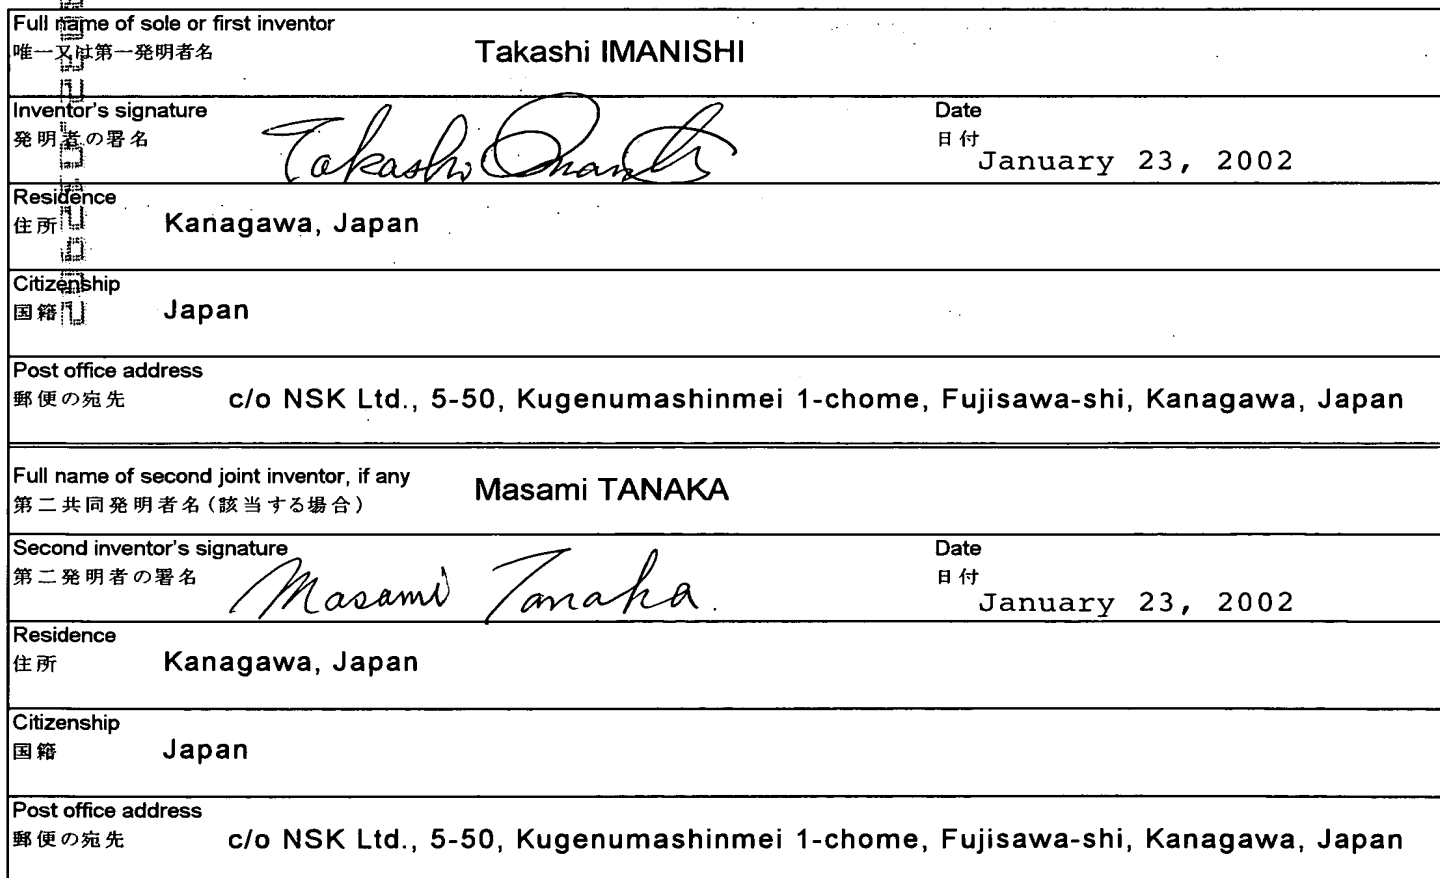 Full name of sole or first inventor
唯一又は第一発明者名 Takashi IMANISHI
Inventor's signature Date
発明者の署名 Takashi Imanishi 日付 January 23, 2002
Residence
住所 Kanagawa, Japan
Citizenship
国籍 Japan
Post office address
郵便の宛先 c/o NSK Ltd., 5-50, Kugenumashinmei 1-chome, Fujisawa-shi, Kanagawa, Japan
Full name of second joint inventor, if any
第二共同発明者名(該当する場合) Masami TANAKA
Second inventor's signature Date
第二発明者の署名 Masami Tanaka. 日付 January 23, 2002
Residence
住所 Kanagawa, Japan
Citizenship
国籍 Japan
Post office address
郵便の宛先 c/o NSK Ltd., 5-50, Kugenumashinmei 1-chome, Fujisawa-shi, Kanagawa, Japan